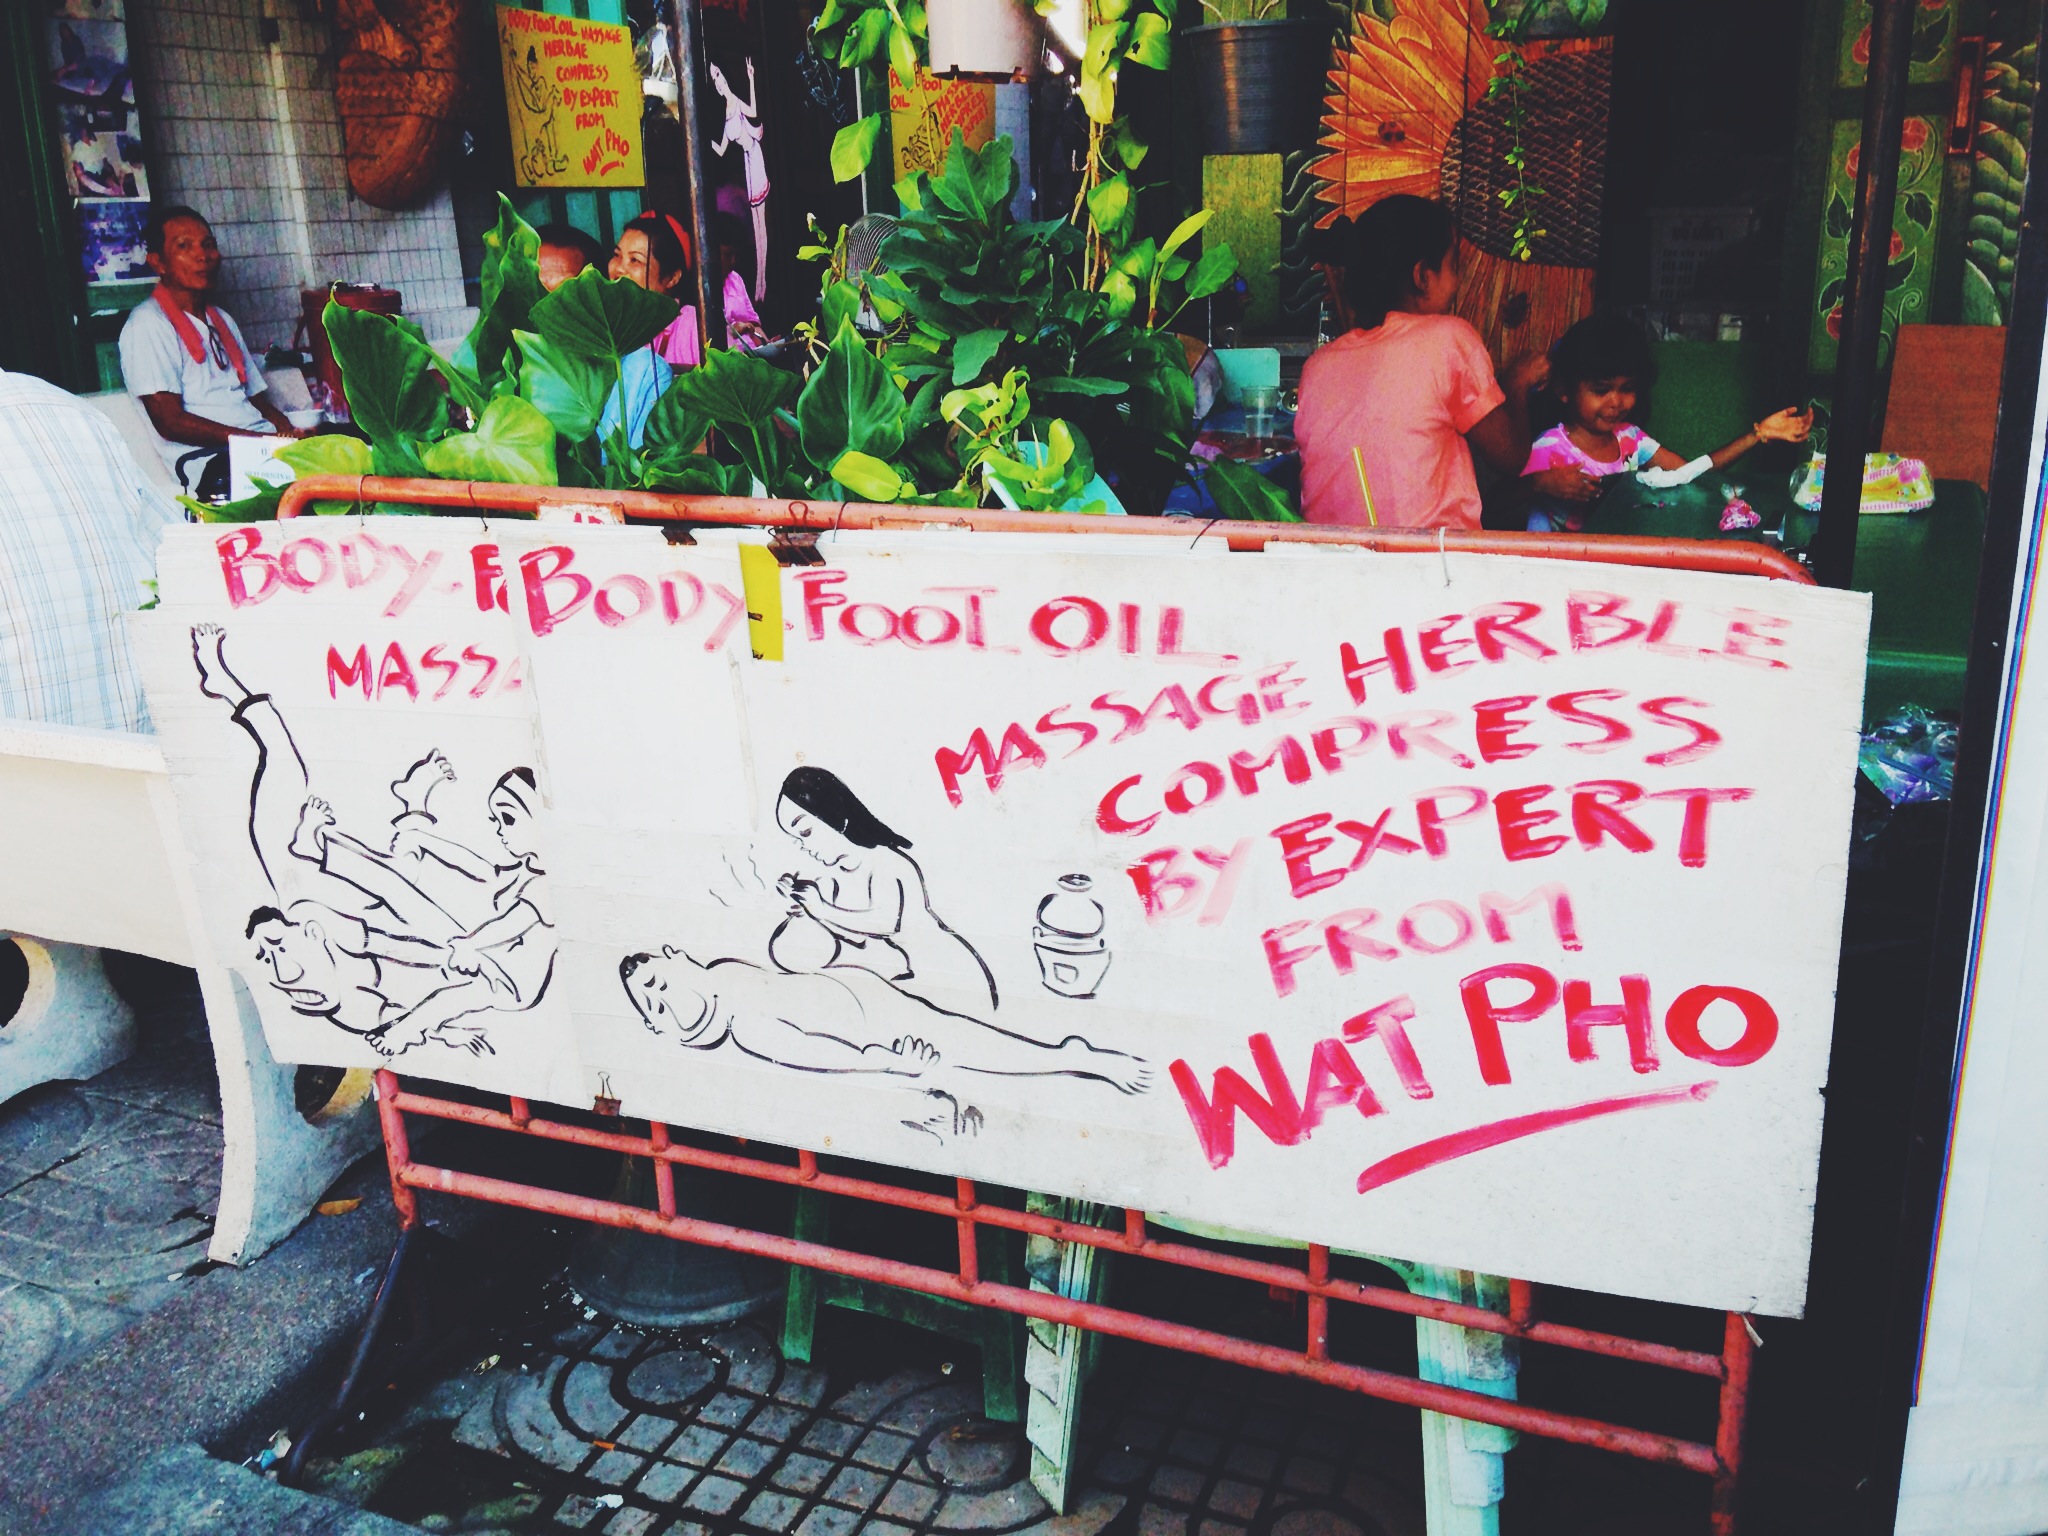 BODY.FOOT.OIL MASSAGE
HERBAE
COMPRESS
BY EXPERT
FROM
WAT PHO
OIL
HERBLE
COMPRESS
EXPERT
BODY.
MASSA
BODY.FOOT.OIL.
MASSAGE HERBLE
COMPRESS
BY EXPERT
FROM
WAT PHO